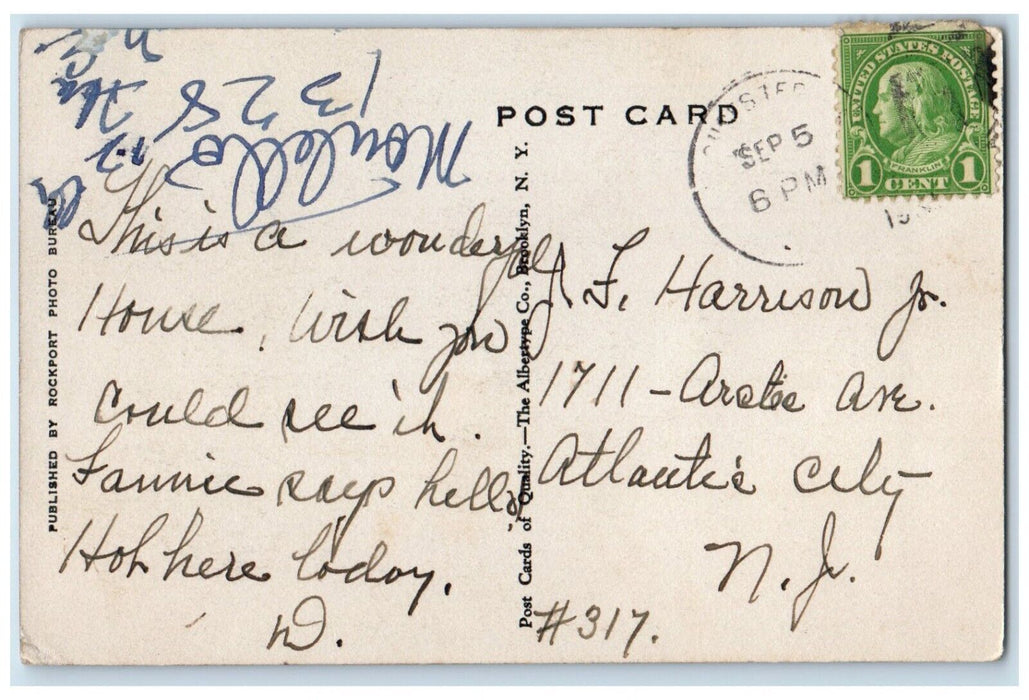 POST CARD
UNITED STATES POSTAGE
FRANKLIN
1 CENT 1
SEP 5
6 PM
This is a wonderful
House, Wish you
could see it.
Fannie says hello
Hot here today.
D.
F. Harrison Jr.
1711 - Arctic Ave.
Atlantic City
N. J.
#317.
PUBLISHED BY ROCKPORT PHOTO BUREAU
Post Cards of Quality.—The Albertype Co., Brooklyn, N. Y.
1328